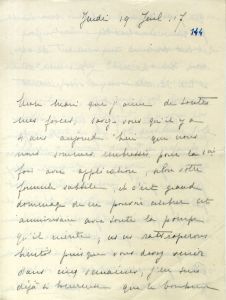 Jeudi 19 Juil. 17
144
Mon mari que j'aime de toutes
mes forces, savez vous qu'il y a
4 ans aujourd'hui que nous
nous sommes embrassés pour la 1ère
fois avec application, selon votre
formule subtile, et c'est grand
dommage de ne pouvoir célébrer cet
anniversaire avec toute la pompe
qu'il mérite, nous nous rattraperons
bientôt puisque vous devez venir
dans cinq semaines, j'en suis
déjà si heureuse que le bonheur